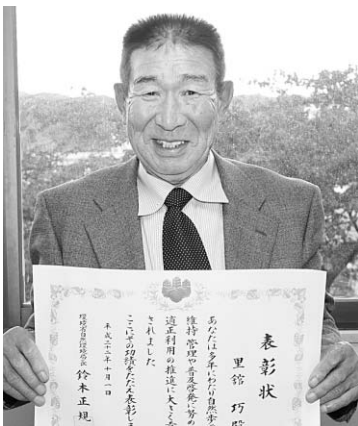 表彰状
里舘 巧殿
あなたは多年にわたり自然歩
維持管理や普及啓発に努め
適正利用の推進に大きく
されました
ここにその功績をたたえ表彰しま
平成二十二年十月一日
環境省自然環境局長 鈴木正規